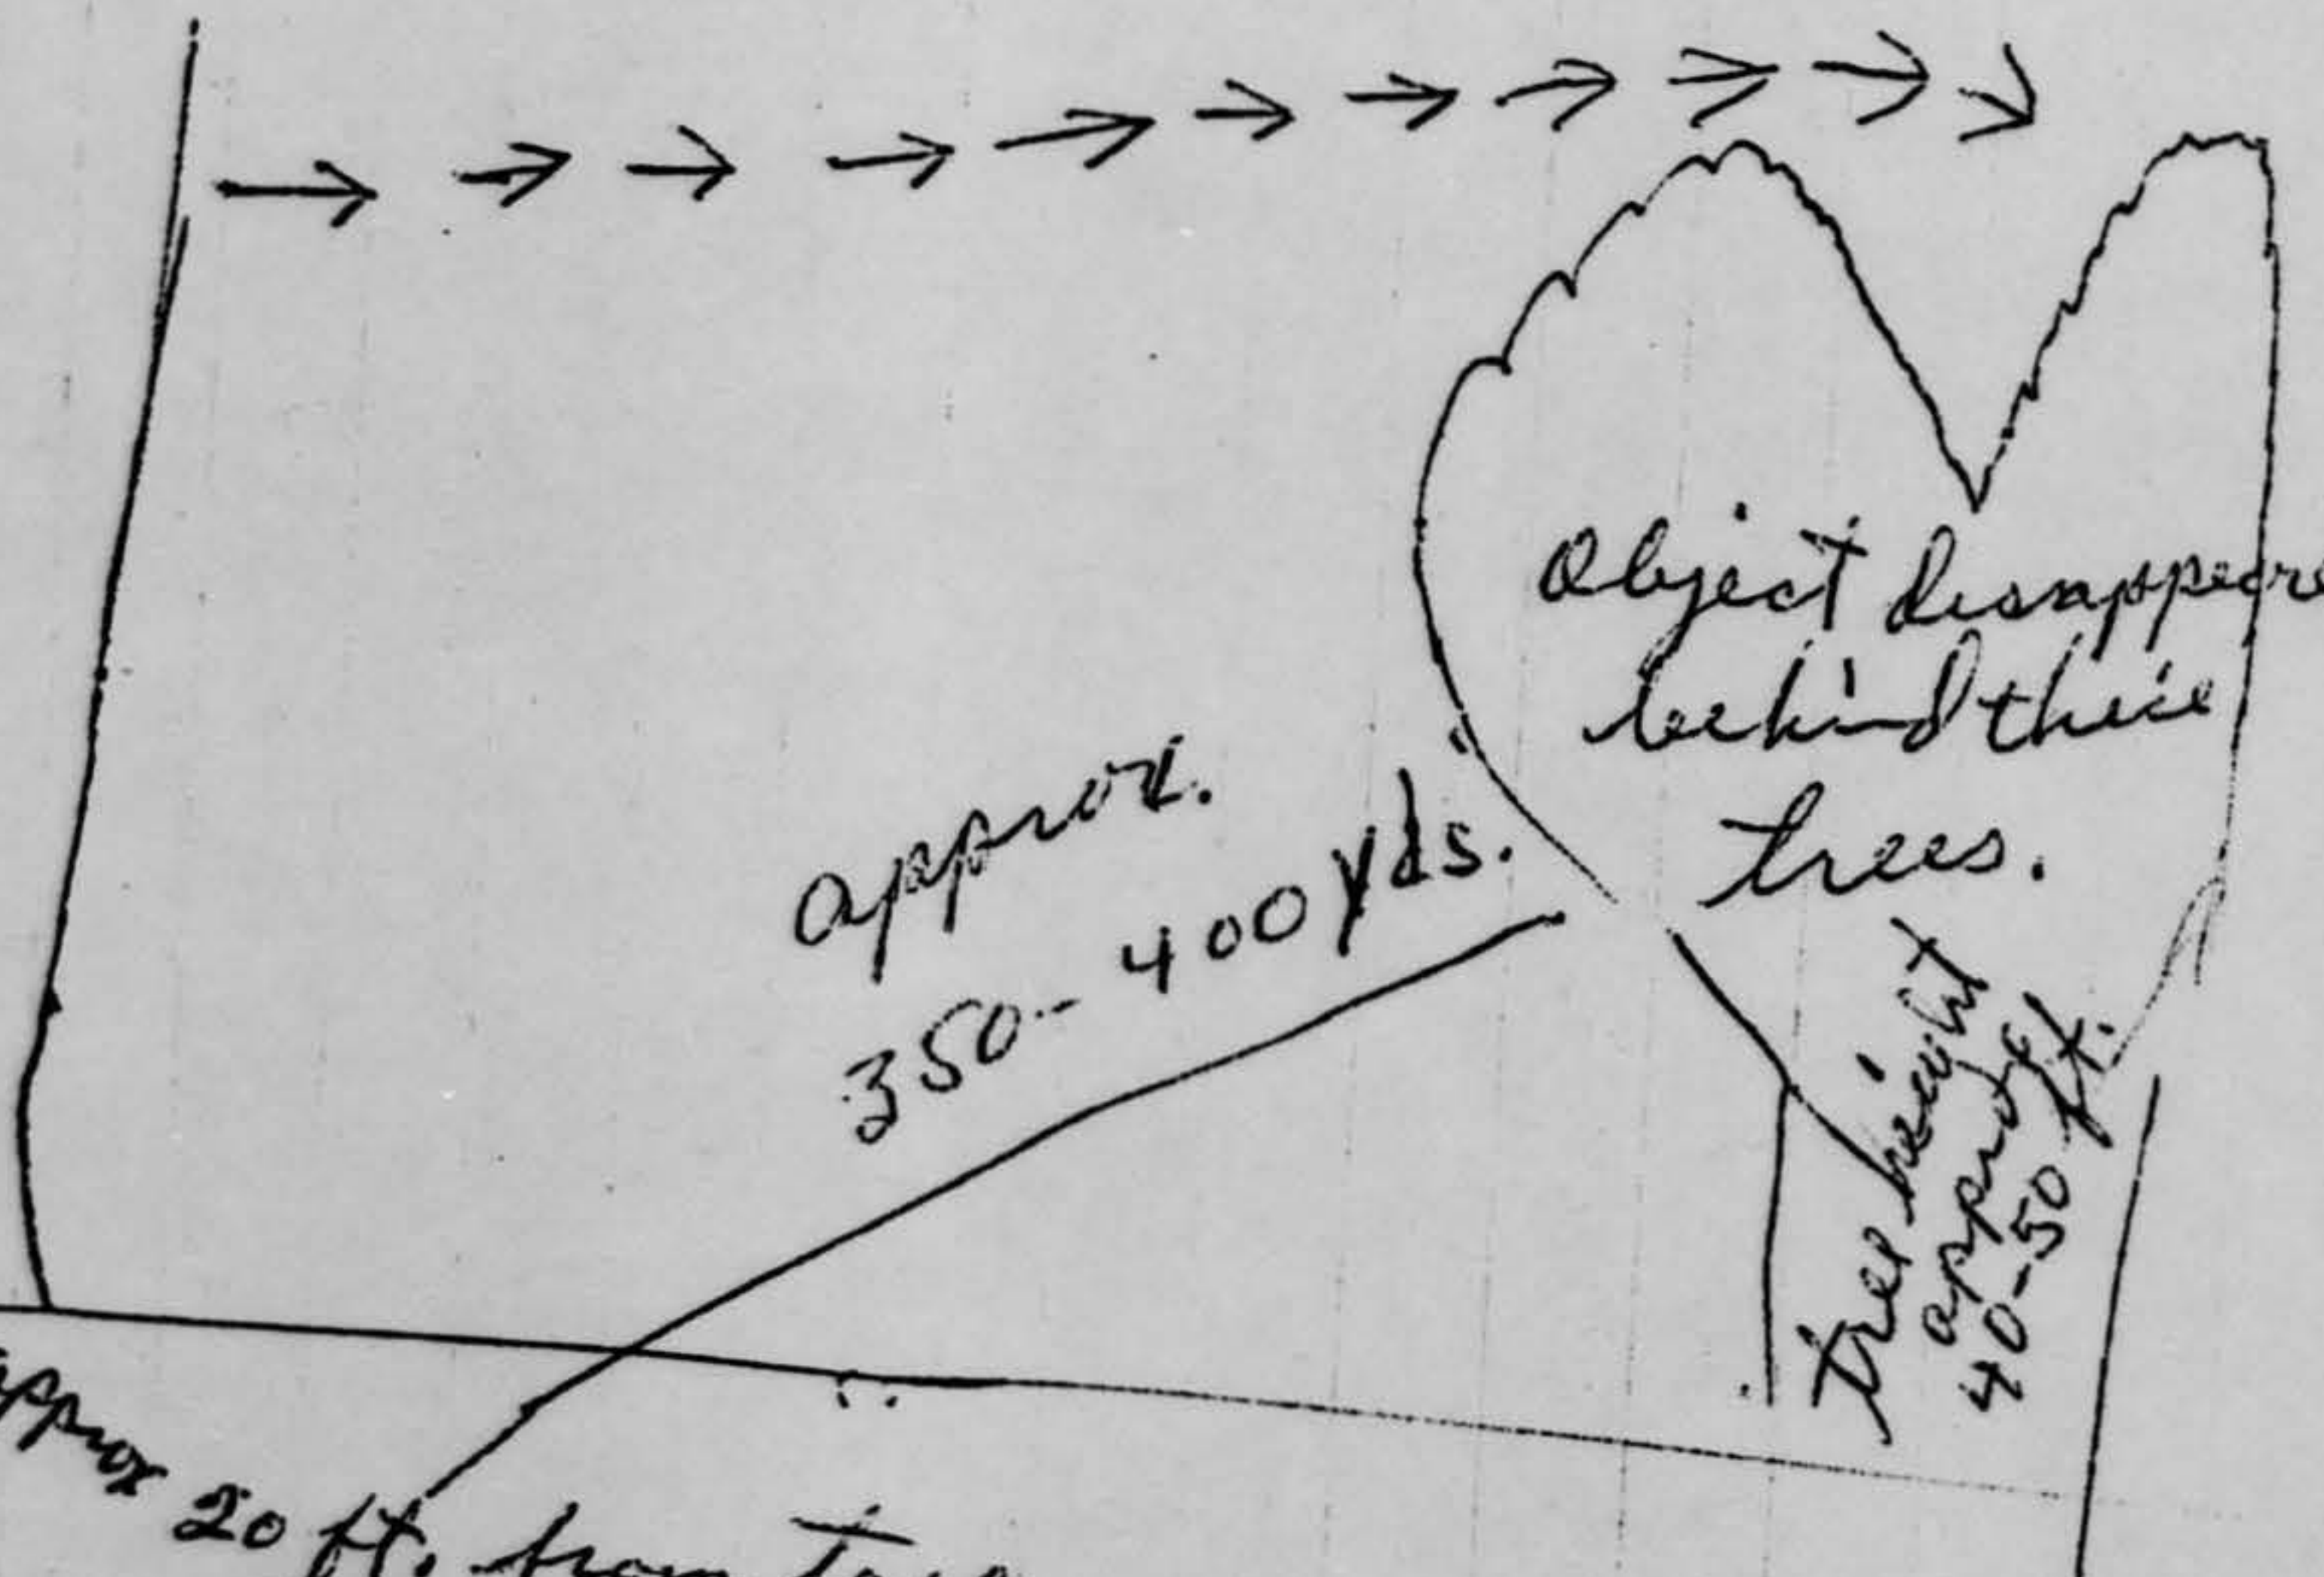 Object disappeare
behind these
trees.
approx.
350-400 yds.
tree height
approx
40-50 ft.
approx 20 ft. from